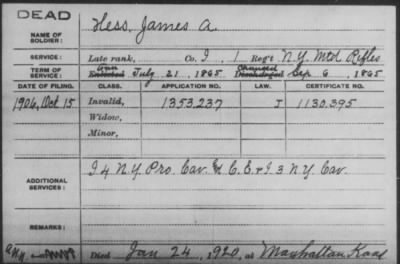 DEAD
NAME OF SOLDIER: Hess, James A.
SERVICE: Late rank, Co. I, 1 Reg't N.Y. Mtd Rifles
TERM OF SERVICE: Enlisted July 21, 1865 Discharged Sep 6, 1865
DATE OF FILING. CLASS. APPLICATION NO. LAW. CERTIFICATE NO.
1906, Oct 15 Invalid, 1353,237 I 1130.395
Widow,
Minor,
ADDITIONAL SERVICES: I 4 N.Y. Pro. Cav. & C. E. & I 3 N.Y. Cav.
REMARKS:
Died Jan 24, 1920, at Manhattan Kans